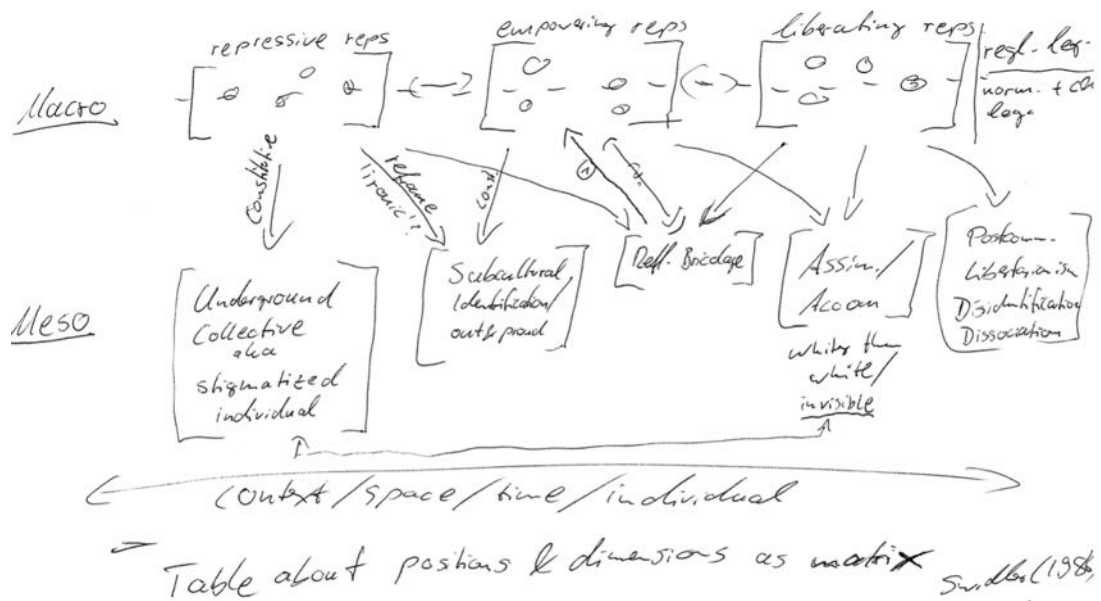 repressive reps
empowering reps
liberating reps
regl. leg.
norm. + ch
leg.
Macro
Constitutive
reframe
'ironic'?
const.
①
Underground
Collective
aka
stigmatized
individual
Subcultural
Identification/
out & proud
Refl. Bricolage
Assim./
Accom
whiter than
white/
invisible
Postcomm.
Libertarianism
Disidentification
Dissociation
Meso
Context/space/time/individual
Table about positions & dimensions as matrix
Swidler (1986,